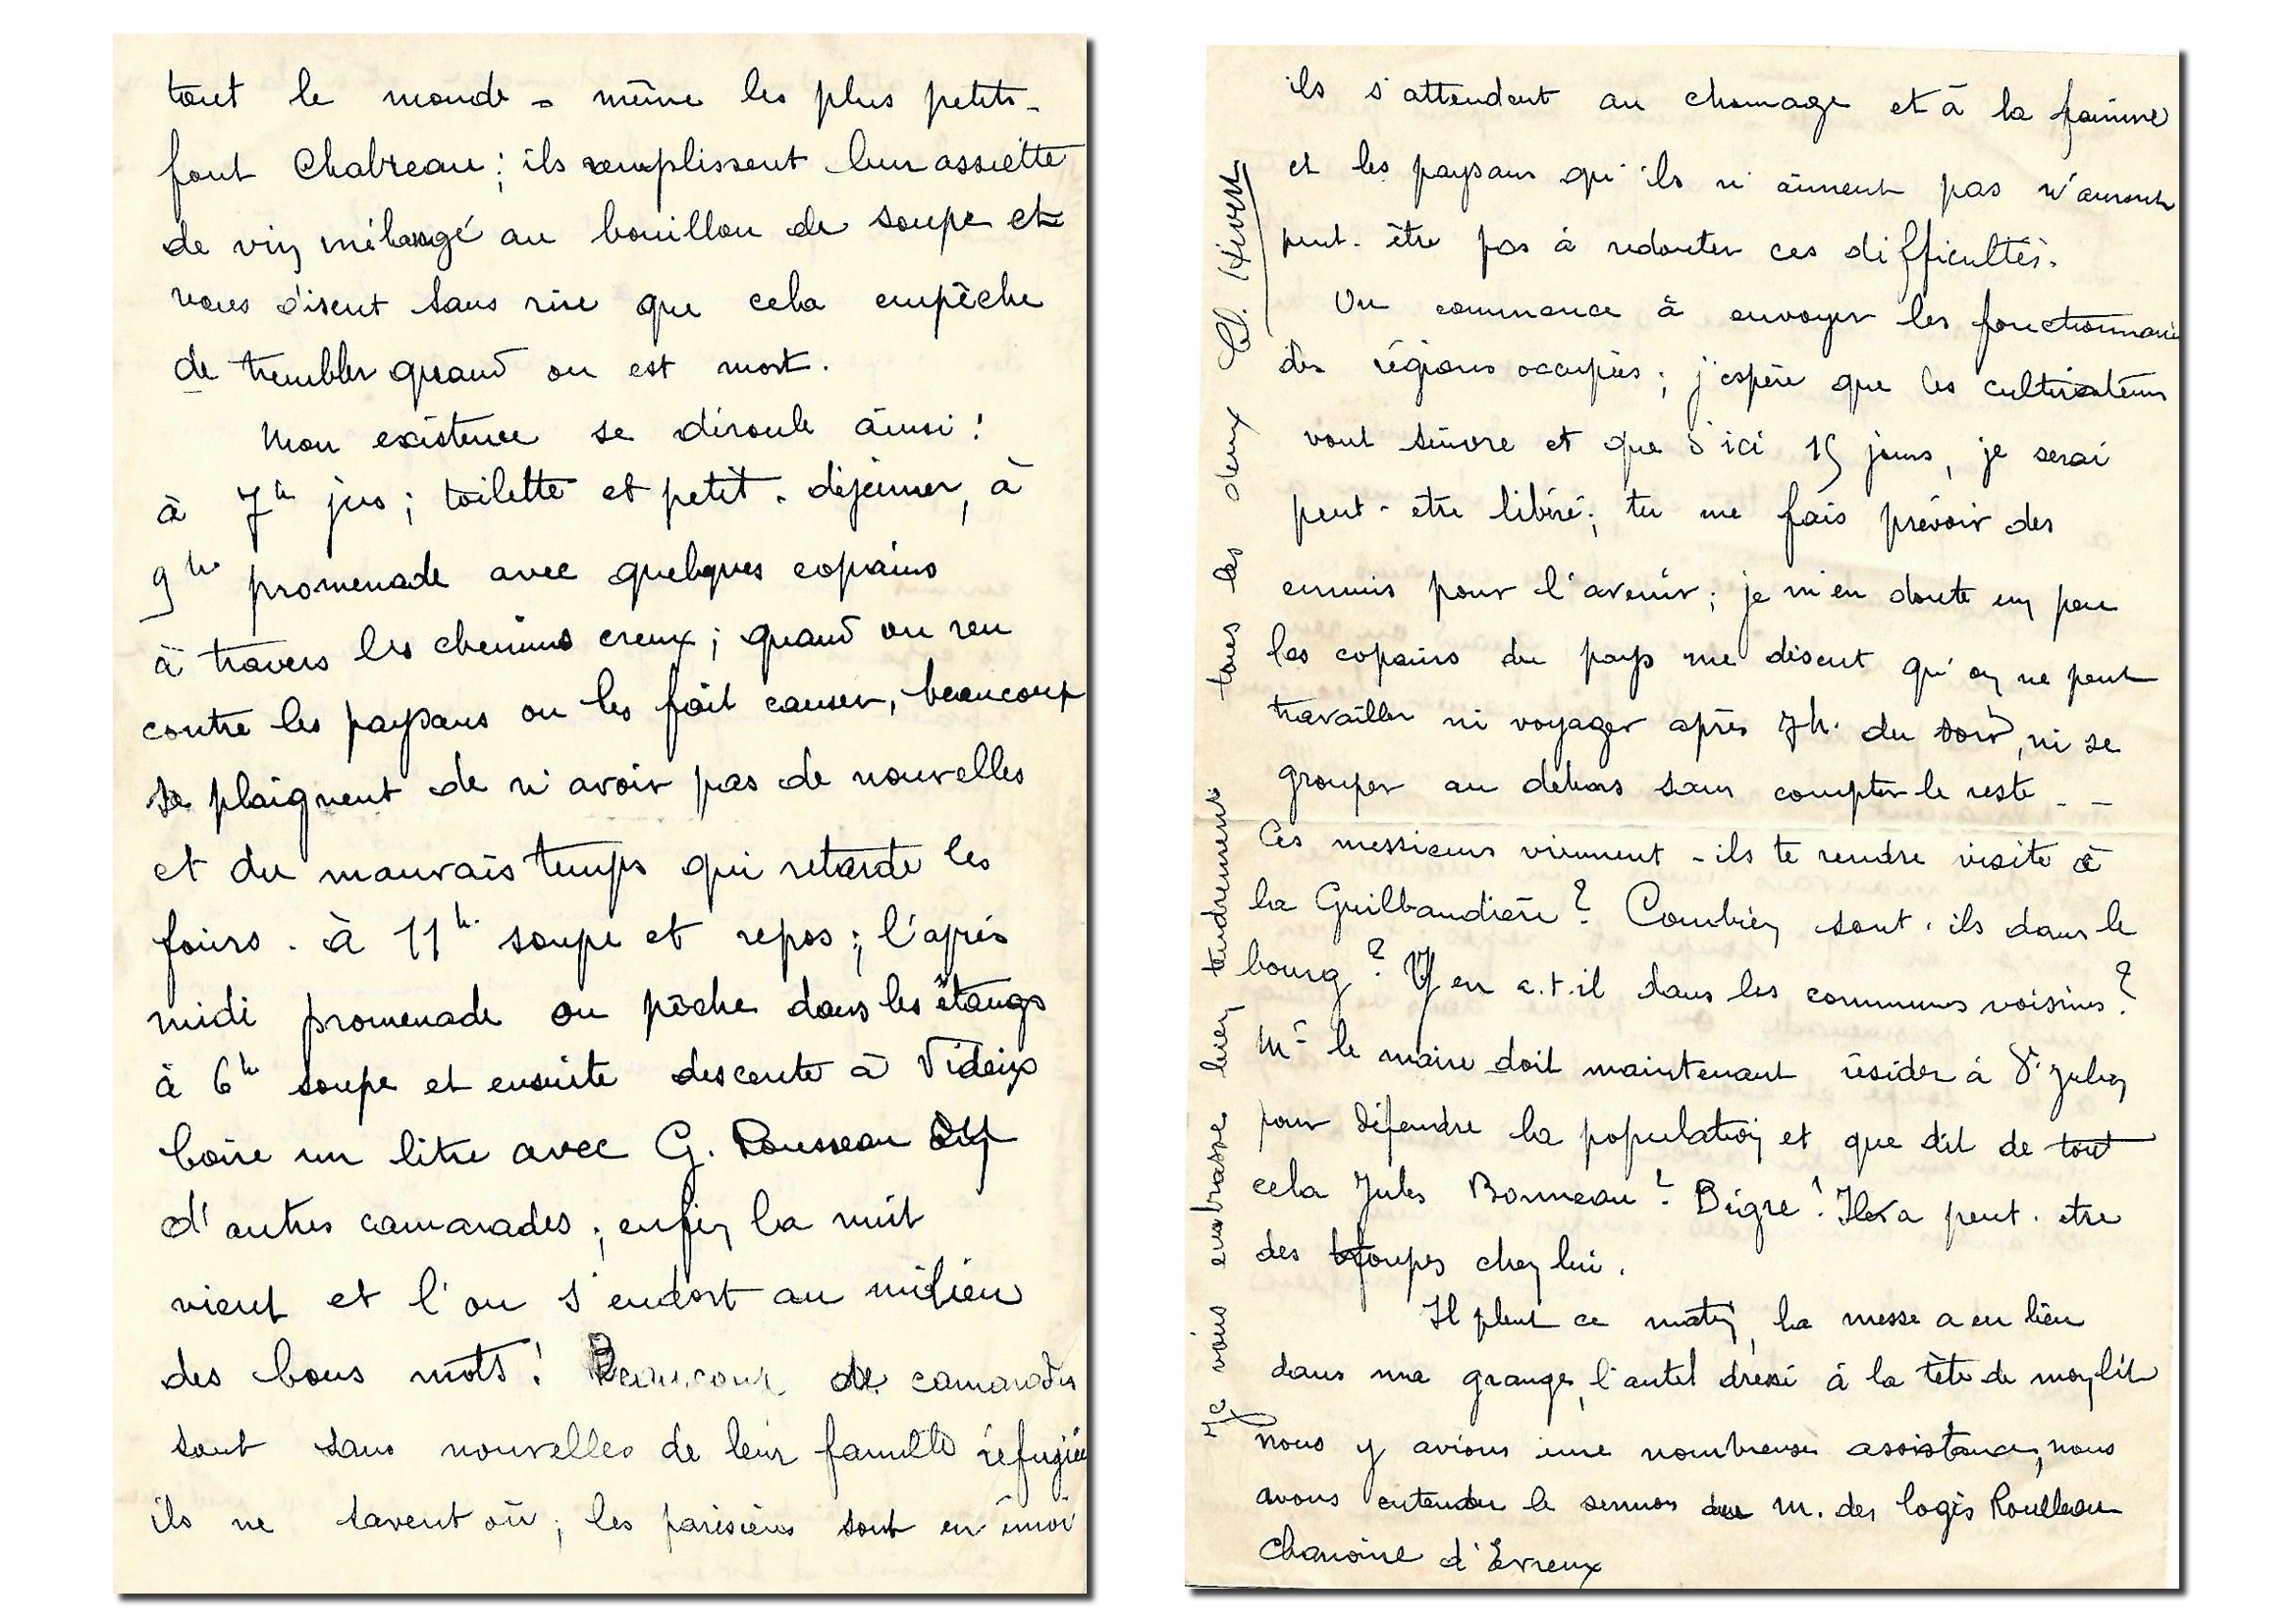 tout le monde - même les plus petits -
font Chabreau ; ils remplissent leur assiette
de vin mélangé au bouillon de soupe et
vous disent sans rire que cela empêche
de trembler quand on est mort.
Mon existence se déroule ainsi :
à 7h jus ; toilette et petit-déjeuner, à
9h promenade avec quelques copains
à travers les chemins creux ; quand on ren
contre les paysans on les fait causer, beaucoup
se plaignent de n'avoir pas de nouvelles
et du mauvais temps qui retarde les
foins. à 11h. soupe et repos ; l'après
midi promenade ou pêche dans les étangs
à 6h soupe et ensuite descente à Videix
boire un litre avec G. Rousseau et
d'autres camarades ; enfin la nuit
vient et l'on s'endort au milieu
des bons mots ! Beaucoup de camarades
sont sans nouvelles de leur famille réfugiée
ils ne savent où ; les parisiens sont en émoi
ils s'attendent au chomage et à la famine
et les paysans qu'ils n'aiment pas n'auront
peut-être pas à redouter ces difficultés.
On commence à envoyer les fonctionnaires
des régions occupées ; j'espère que les cultivateurs
vont suivre et que d'ici 15 jours, je serai
peut-etre libéré ; tu me fais prévoir des
ennuis pour l'avenir ; je m'en doute un peu
les copains du pays me disent qu'on ne peut
travailler ni voyager après 7h. du soir, ni se
grouper au dehors sans compter le reste - -
Ces messieurs viennent-ils te rendre visite à
la Guilbaudière ? Combien sont-ils dans le
bourg ? Y en a.t.il dans les communes voisines ?
Mr le maire doit maintenant résider à St Julien
pour défendre la population et que dit de tout
cela Jules Bonneau ? Bigre ! Il y a peut-etre
des troupes chez lui.
Il pleut ce matin, la messe a eu lieu
dans ma grange, l'autel dressé à la tête de mon lit
nous y avions une nombreuse assistance, nous
avons entendu le sermon du m. des logis Roulleau
Chanoine d'Evreux
Je vous embrasse bien tendrement tous les deux Cl. Hivert